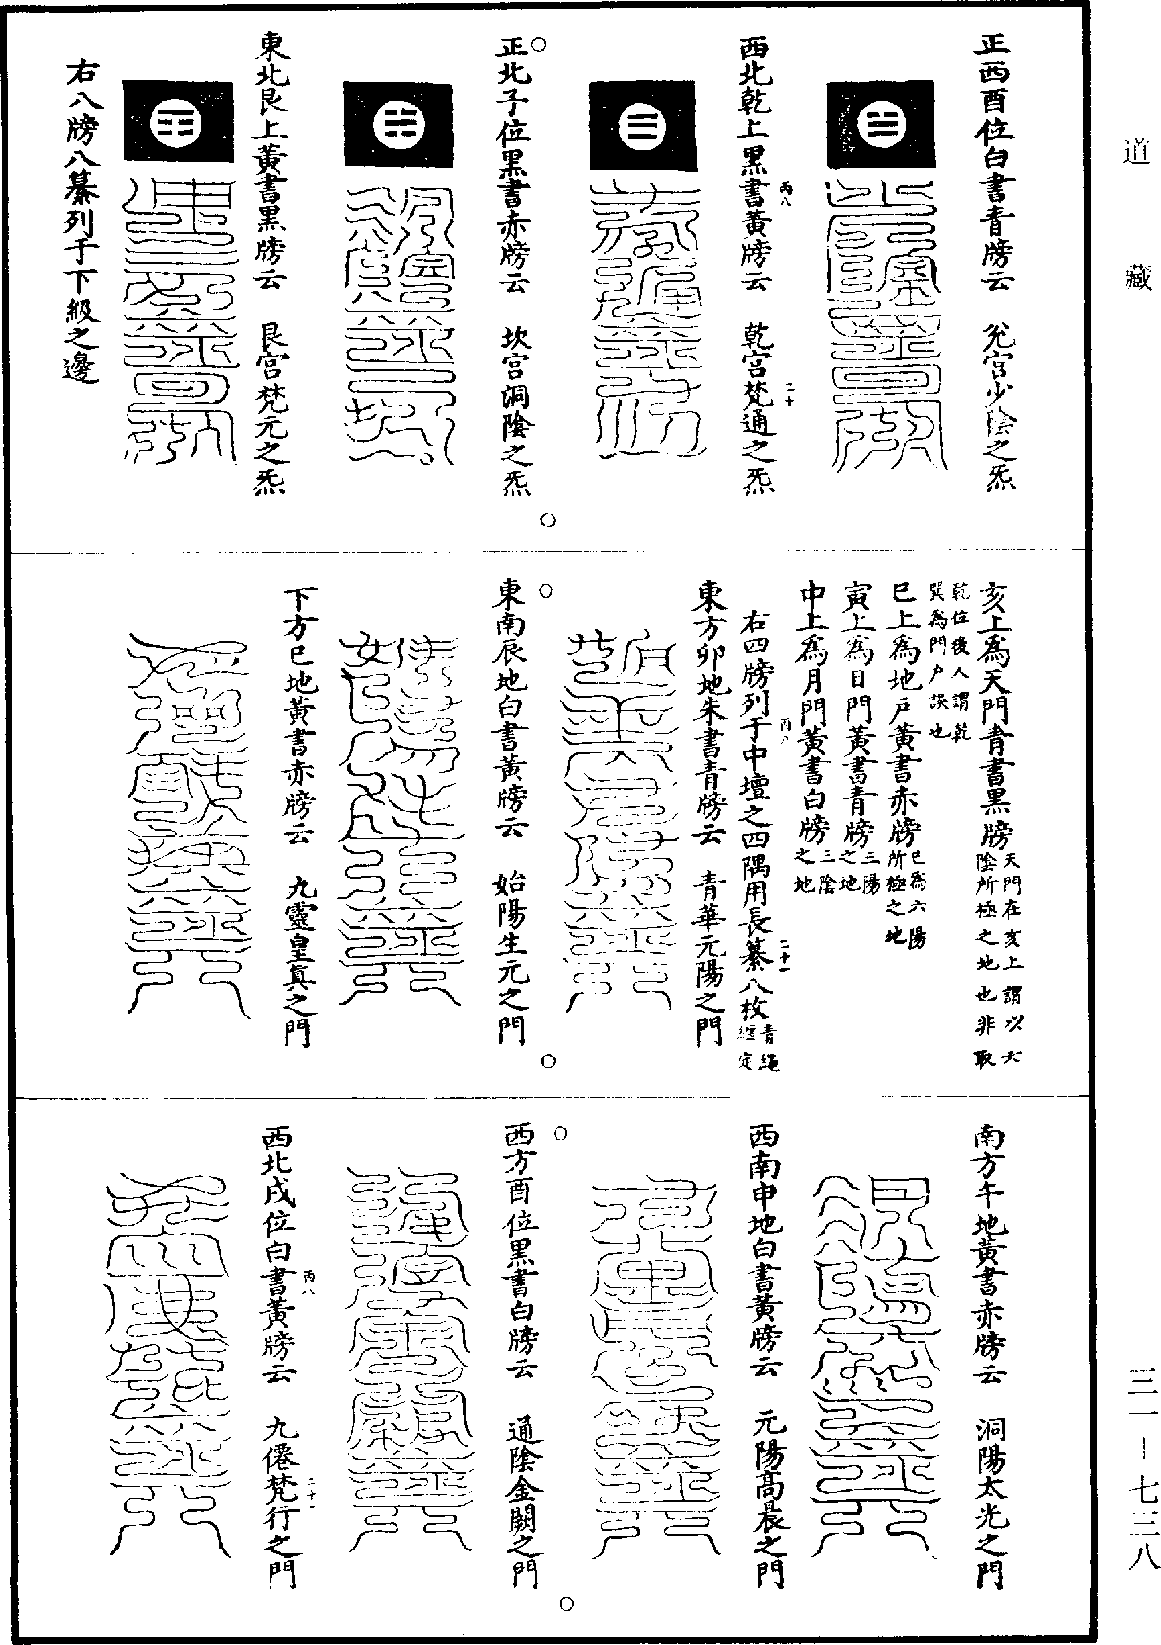 道藏
三一－七三八
正西酉位白書青牓云　兊宮少陰之炁
西北乾上黑書黃牓云　乾宮梵通之炁
丙八
二十
正北子位黑書赤牓云　坎宮洞陰之炁
東北艮上黃書黑牓云　艮宮梵元之炁
右八牓八纂列于下級之邊
亥上爲天門青書黑牓天門在亥上謂以六
陰所極之地也非取
乾位後人謂乾
巽爲門户誤也
巳上爲地戸黃書赤牓巳爲六陽
所極之地
寅上爲日門黃書青牓三陽
之地
申上爲月門黃書白牓三陰
之地
右四牓列于中壇之四隅用長纂八枚青繩
纏定
丙八
二十一
東方卯地朱書青牓云　青華元陽之門
東南辰地白書黃牓云　始陽生元之門
下方巳地黃書赤牓云　九靈皇真之門
南方午地黃書赤牓云　洞陽太光之門
西南申地白書黃牓云　元陽高晨之門
西方酉位黑書白牓云　通陰金闕之門
西北戌位白書黃牓云　九僊梵行之門
丙八
二十一